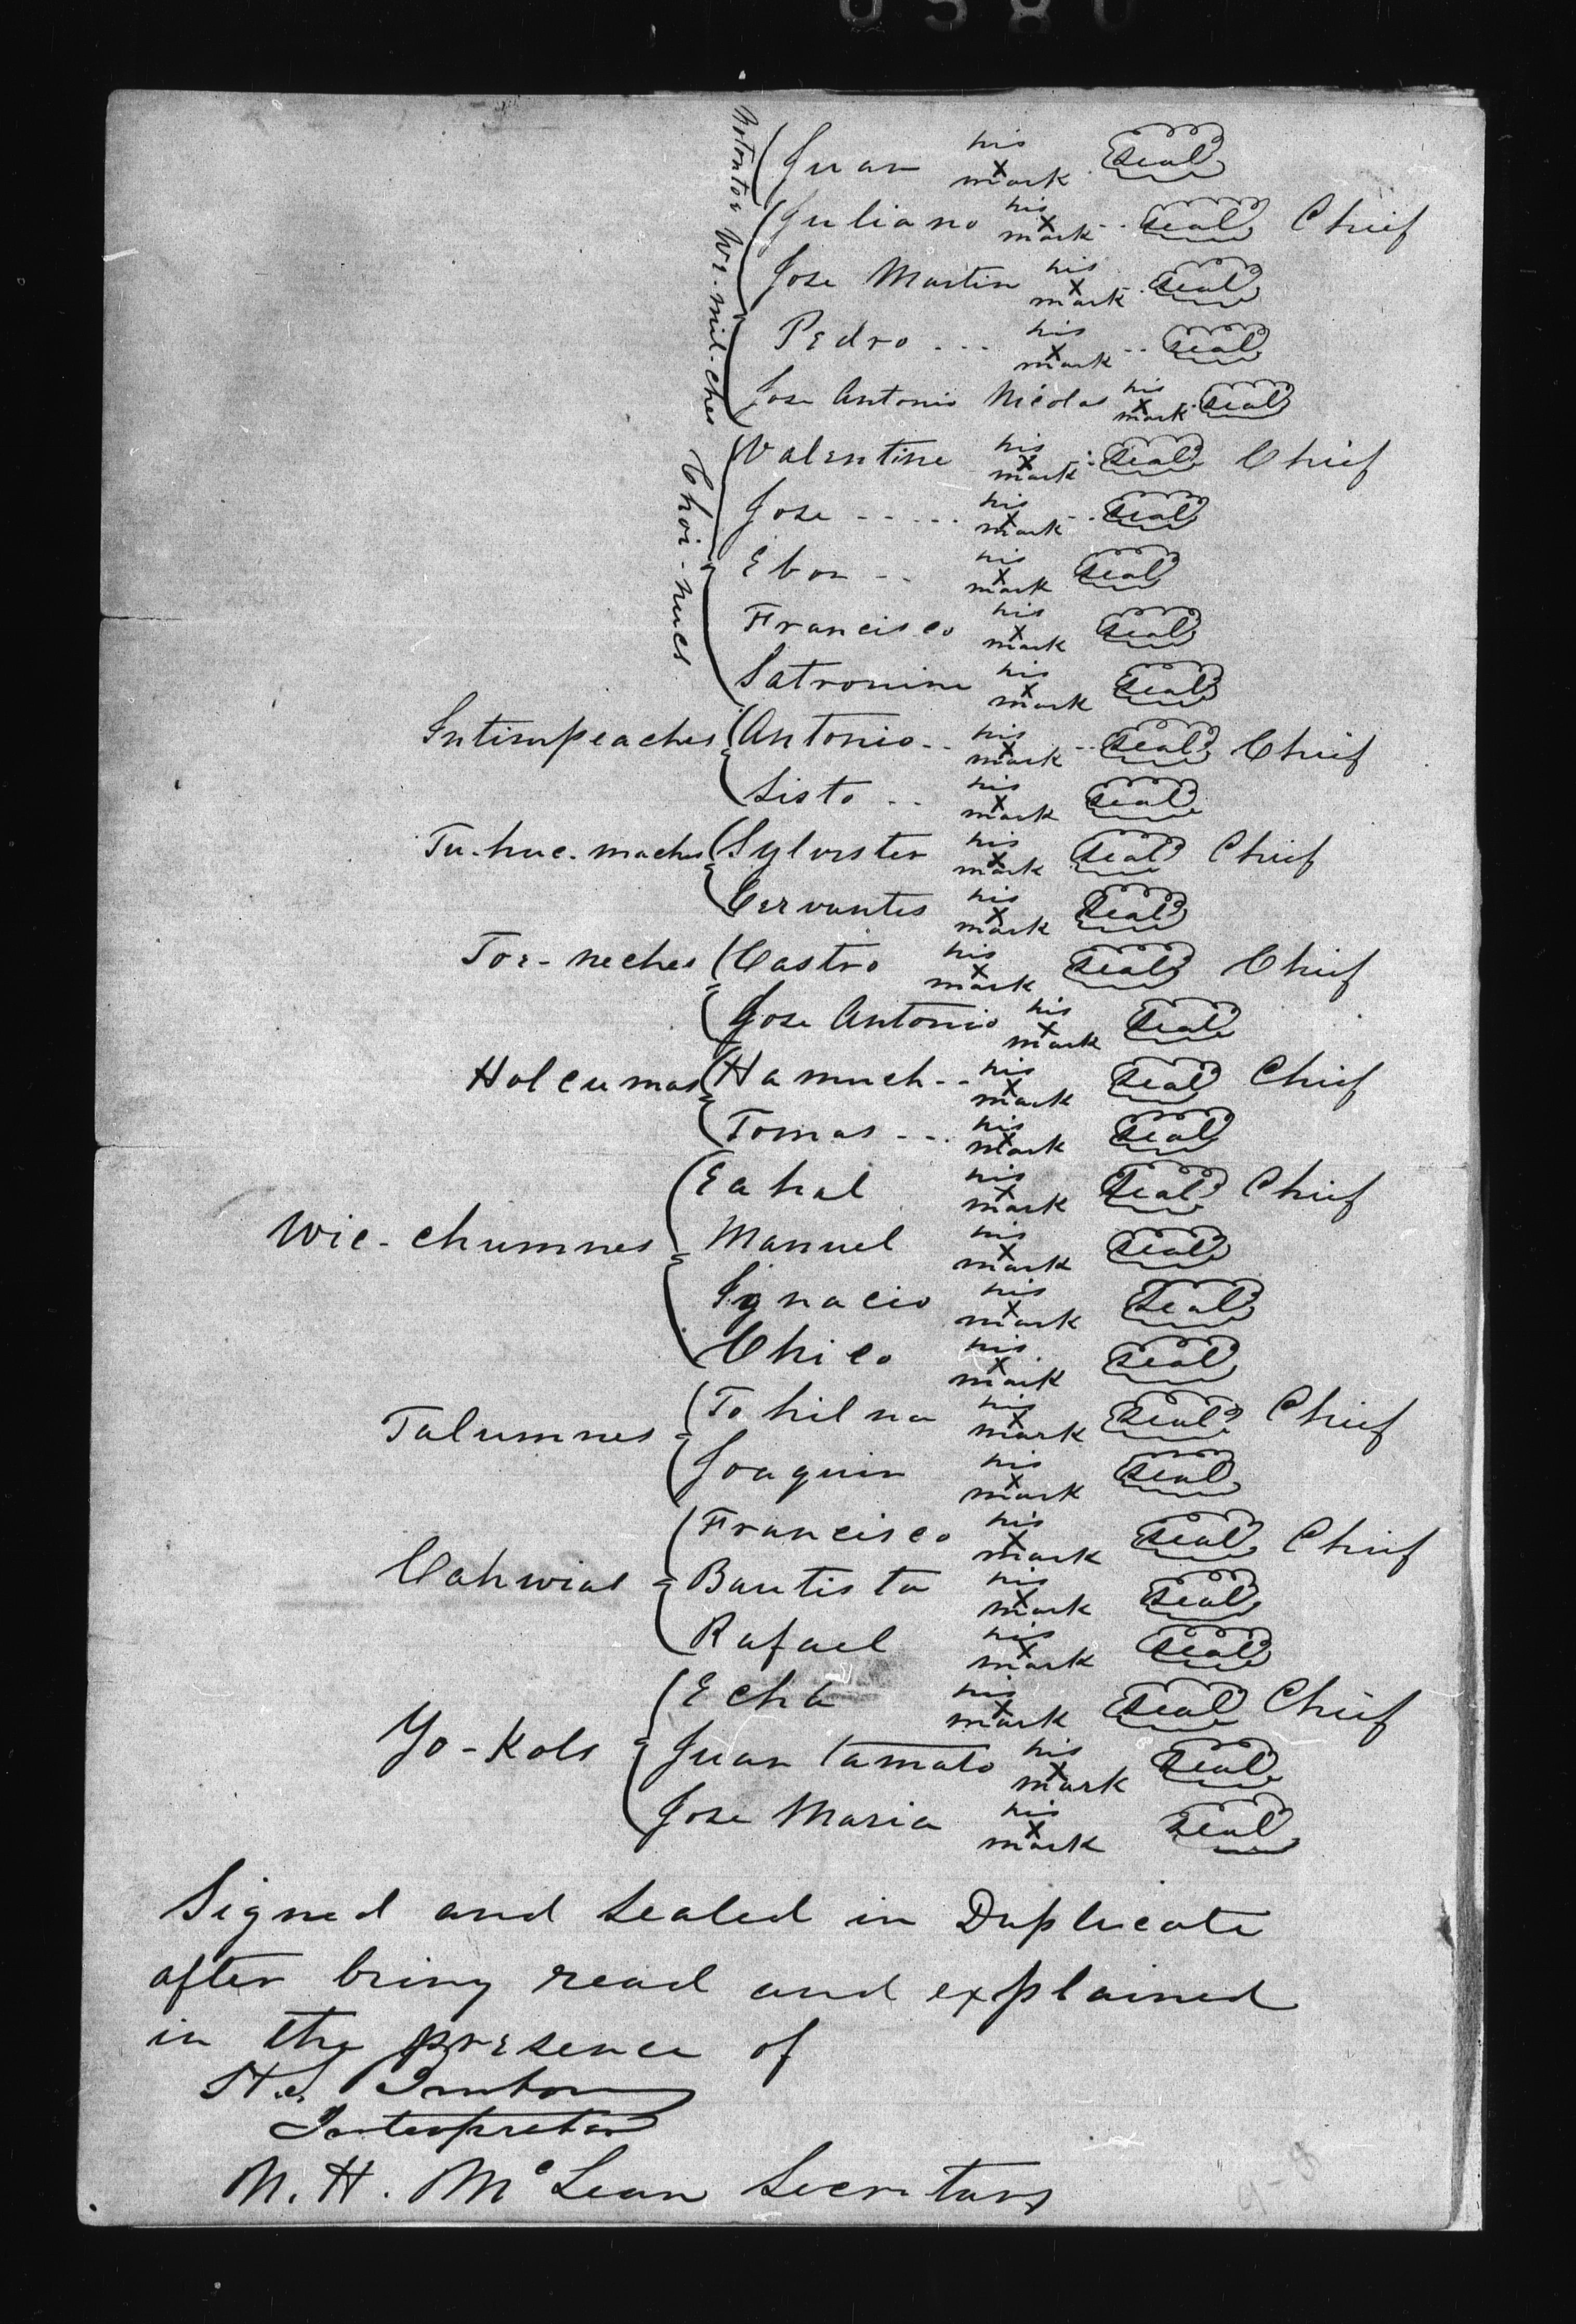 Juan his x mark seal
Wi-mil-ches
Juliano his x mark seal Chief
Jose Martin his x mark seal
Pedro his x mark seal
Jose Antonio Nicolas his x mark seal
Choi-nucs
Valentine his x mark seal Chief
Jose his x mark seal
Ebon his x mark seal
Francisco his x mark seal
Satronine his x mark seal
Intimpeaches Antonio his x mark seal Chief
Sisto his x mark seal
Tu-huc-maches Sylvester his x mark seal Chief
Cervantes his x mark seal
Toi-neches Castro his x mark seal Chief
Jose Antonio his x mark seal
Holcumas Hamuch his x mark seal Chief
Tomas his x mark seal
Eahal his x mark seal Chief
Wic-chumnes Manuel his x mark seal
Ignacio his x mark seal
Chico his x mark seal
Tohilna his x mark seal Chief
Talumnes
Joaquin his x mark seal
Francisco his x mark seal Chief
Cahwias Bautista his x mark seal
Rafael his x mark seal
Echa his x mark seal Chief
Yo-Kols Juan Tamato his x mark seal
Jose Maria his x mark seal
Signed and Sealed in Duplicate
after being read and explained
in the presence of
Interpreter
N. H. McLean Secretary